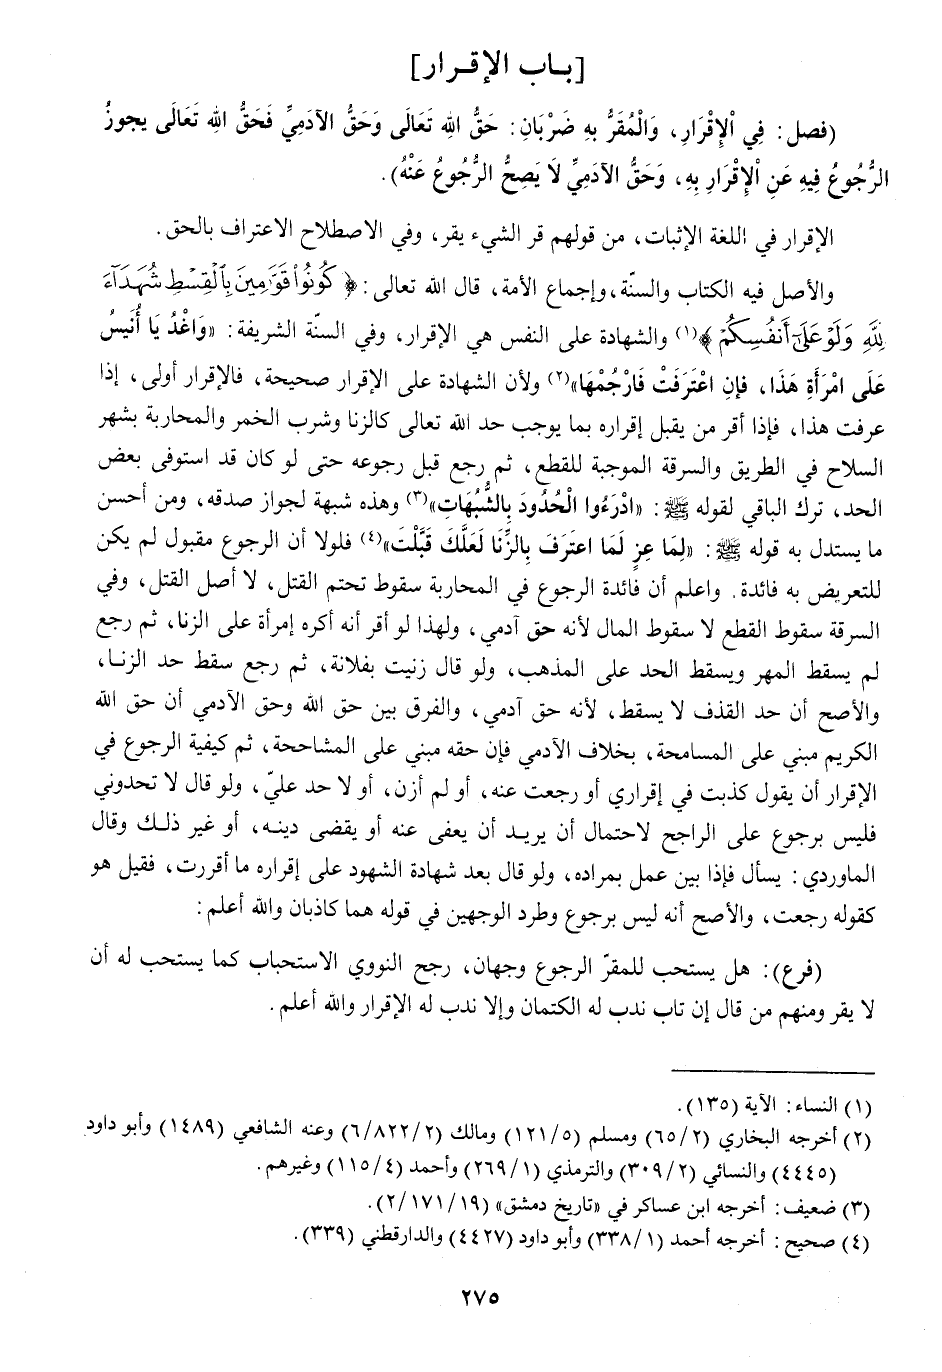 [بـاب الإقـرار]
(فصل: فِي اْلإِقْرَارِ، وَالْمُقَرُّ بِهِ ضَرْبَانِ: حَقُّ اللهِ تَعَالَى وَحَقُّ الآدَمِيِّ فَحَقُّ اللهِ تَعَالَى يجوزُ
الرُّجُوعُ فِيهِ عَنِ اْلإِقْرَارِ بِهِ، وَحَقُّ الآدَمِيِّ لاَ يَصِحُّ الرُّجُوعُ عَنْهُ).
الإقرار في اللغة الإثبات، من قولهم قر الشيء يقر، وفي الاصطلاح الاعتراف بالحق.
والأصل فيه الكتاب والسنّة، وإجماع الأمة، قال الله تعالى: ﴿كُونُواْ قَوَّٰمِينَ بِٱلْقِسْطِ شُهَدَآءَ
لِلَّهِ وَلَوْ عَلَىٰٓ أَنفُسِكُمْ﴾(١) والشهادة على النفس هي الإقرار، وفي السنّة الشريفة: «وَاغْدُ يَا أُنَيسُ
عَلَى امْرَأَةِ هَذَا، فَإِنِ اعْتَرَفَتْ فَارْجُمْهَا»(٢) ولأن الشهادة على الإقرار صحيحة، فالإقرار أولى، إذا
عرفت هذا، فإذا أقر من يقبل إقراره بما يوجب حد الله تعالى كالزنا وشرب الخمر والمحاربة بشهر
السلاح في الطريق والسرقة الموجبة للقطع، ثم رجع قبل رجوعه حتى لو كان قد استوفى بعض
الحد، ترك الباقي لقوله ﷺ: «ادْرَءُوا الْحُدُودَ بِالشُّبُهَاتِ»(٣) وهذه شبهة لجواز صدقه، ومن أحسن
ما يستدل به قوله ﷺ: «لِمَا عِزٍ لَمَا اعتَرَفَ بِالزِّنَا لَعَلَّكَ قَبَّلْتَ»(٤) فلولا أن الرجوع مقبول لم يكن
للتعريض به فائدة. واعلم أن فائدة الرجوع في المحاربة سقوط تحتم القتل، لا أصل القتل، وفي
السرقة سقوط القطع لا سقوط المال لأنه حق آدمي، ولهذا لو أقر أنه أكره إمرأة على الزنا، ثم رجع
لم يسقط المهر ويسقط الحد على المذهب، ولو قال زنيت بفلانة، ثم رجع سقط حد الزنـا،
والأصح أن حد القذف لا يسقط، لأنه حق آدمي، والفرق بين حق الله وحق الآدمي أن حق الله
الكريم مبني على المسامحة، بخلاف الآدمي فإن حقه مبني على المشاححة، ثم كيفية الرجوع في
الإقرار أن يقول كذبت في إقراري أو رجعت عنه، أو لم أزن، أو لا حد عليّ، ولو قال لا تحدوني
فليس برجوع على الراجح لاحتمال أن يريـد أن يعفى عنه أو يقضى دينـه، أو غير ذلـك وقال
الماوردي: يسأل فإذا بين عمل بمراده، ولو قال بعد شهادة الشهود على إقراره ما أقررت، فقيل هو
كقوله رجعت، والأصح أنه ليس برجوع وطرد الوجهين في قوله هما كاذبان والله أعلم:
(فرع): هل يستحب للمقرّ الرجوع وجهان، رجح النووي الاستحباب كما يستحب له أن
لا يقر ومنهم من قال إن تاب ندب له الكتمان وإلا ندب له الإقرار والله أعلم.
(١) النساء: الآية (١٣٥).
(٢) أخرجه البخاري (٢/ ٦٥) ومسلم (٥/ ١٢١) ومالك (٢/ ٨٢٢/ ٦) وعنه الشافعي (١٤٨٩) وأبو داود
(٤٤٤٥) والنسائي (٢/ ٣٠٩) والترمذي (١/ ٢٦٩) وأحمد (٤/ ١١٥) وغيرهم.
(٣) ضعيف: أخرجه ابن عساكر في «تاريخ دمشق» (١٩/ ١٧١/ ٢).
(٤) صحيح: أخرجه أحمد (١/ ٣٣٨) وأبو داود (٤٤٢٧) والدارقطني (٣٣٩).
٢٧٥